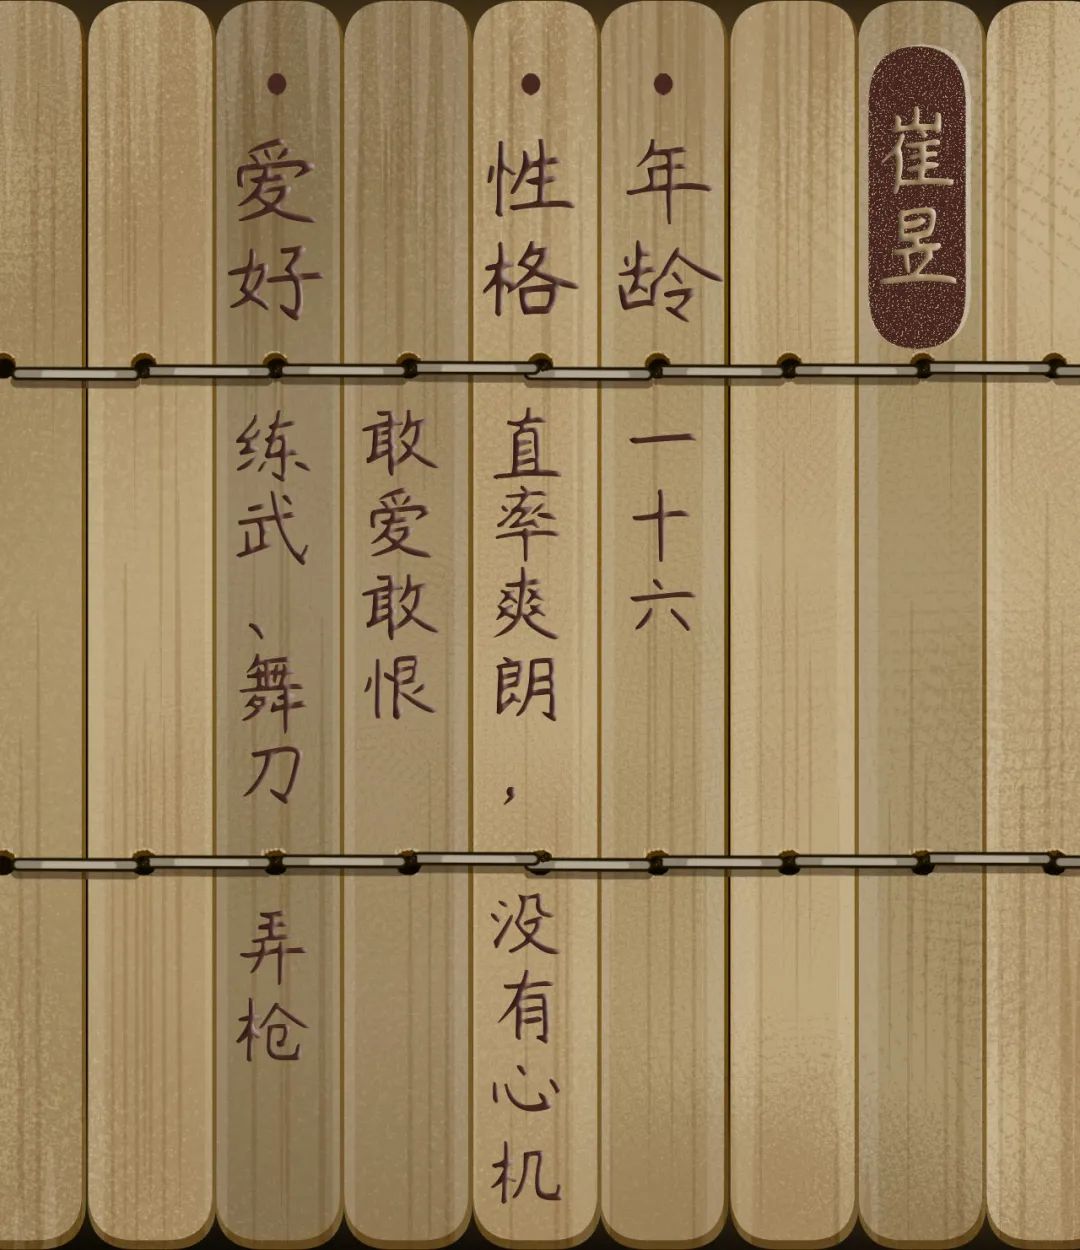 崔昱
•年龄 一十六
•性格 直率爽朗，没有心机
敢爱敢恨
•爱好 练武、舞刀弄枪